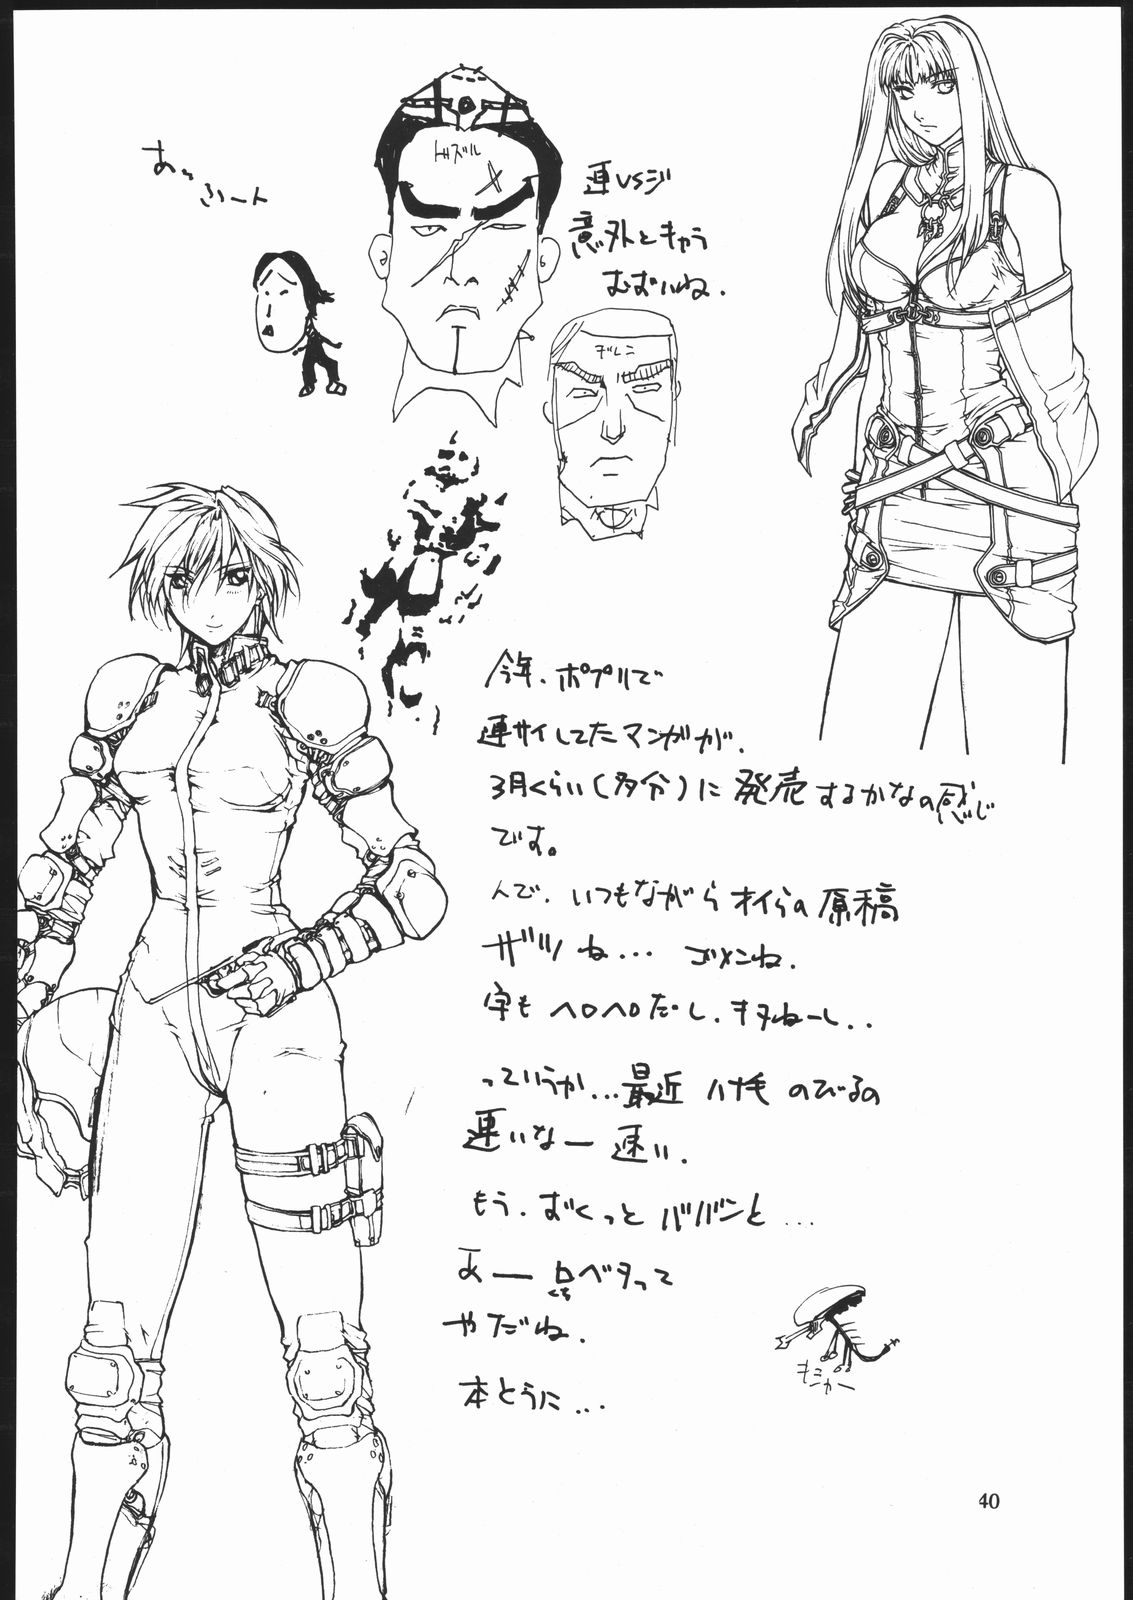 ドズル
連VSジ
意外とキャラ
むずいね.
ギレン
今年、ポプリで
連サイしてたマンガが、
3月くらい(多分)に発売するかなの感じ
です。
んで、いつもながらオイらの原稿
ザツね... ゴメンね.
字もヘロヘロだし、キタねーし..
っていうか...最近 ハナ毛 のびるの
速いなー 速い.
もう、ずくっと ババンと...
あー ベタって
やだね.
本とうに...
40